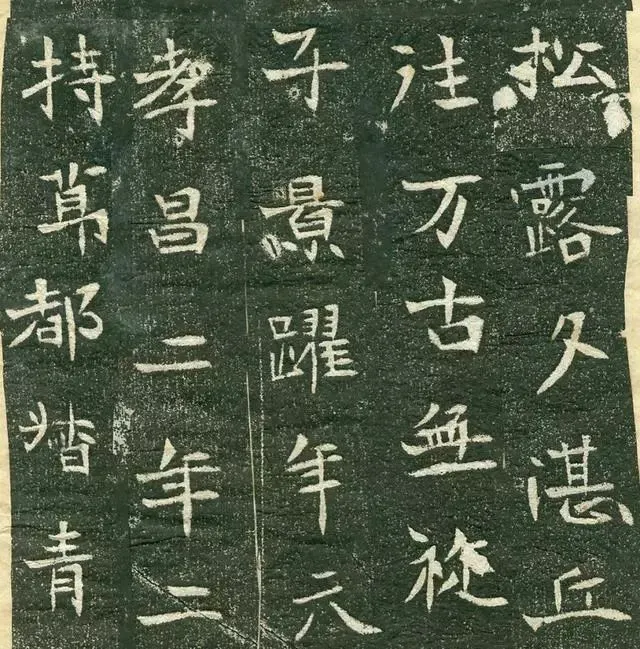 松露夕湛丘
注万古無
子景躍年六
孝昌二年二
持節都督青